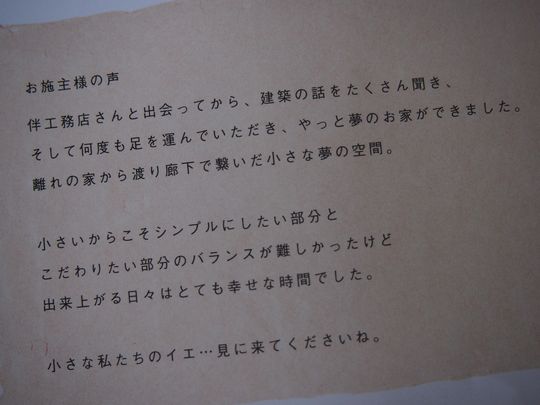 お施主様の声
伴工務店さんと出会ってから、建築の話をたくさん聞き、
そして何度も足を運んでいただき、やっと夢のお家ができました。
離れの家から渡り廊下で繋いだ小さな夢の空間。
小さいからこそシンプルにしたい部分と
こだわりたい部分のバランスが難しかったけど
出来上がる日々はとても幸せな時間でした。
小さな私たちのイエ…見に来てくださいね。